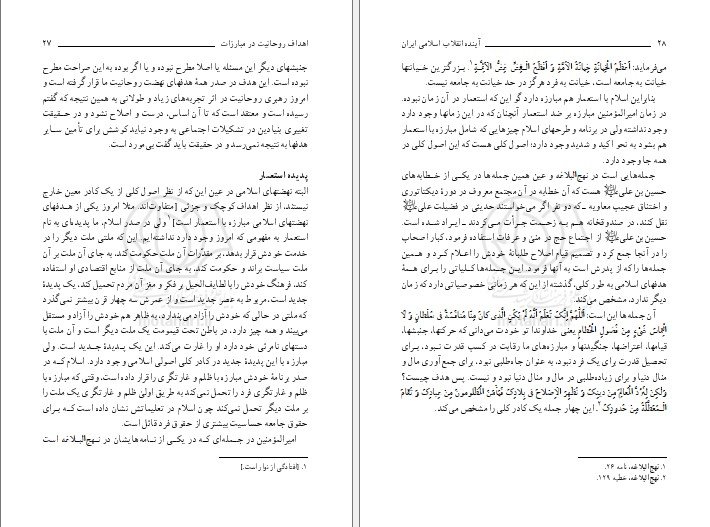 اهداف روحانیت در مبارزات ۲۷
جنبشهای دیگر این مسئله یا اصلا مطرح نبوده و یا اگر بوده به این صراحت مطرح
نبوده است. این هدف در صدر همهٔ هدفهای نهضت روحانیت ما قرار گرفته است و
امروز رهبری روحانیت در اثر تجربه‌های زیاد و طولانی به همین نتیجه که گفتم
رسیده است و معتقد است که تا آن اساس، درست و اصلاح نشود و در حقیقت
تغییری بنیادین در تشکیلات اجتماعی به وجود نیاید کوشش برای تأمین سایر
هدفها به نتیجه نمی‌رسد و در حقیقت باید گفت بی‌مورد است.
پدیدهٔ استعمار
البته نهضتهای اسلامی در عین این که از نظر اصول کلی از یک کادر معین خارج
نیستند، از نظر اهداف کوچک و جزئی [متفاوت‌اند. مثلا امروز یکی از هدفهای
نهضتهای اسلامی مبارزه با استعمار است]۱ ولی در صدر اسلام، ما پدیده‌ای به نام
استعمار به مفهومی که امروز وجود دارد نداشته‌ایم. این که ملتی ملت دیگر را در
خدمت خودش قرار بدهد، بر مقدّرات آن ملت حکومت کند، به جای آن ملت بر آن
ملت سیاست براند و حکومت کند، به جای آن ملت از منابع اقتصادی او استفاده
کند، فرهنگ خودش را با لطایف‌الحیل بر فکر و مغز آن مردم تحمیل کند، یک پدیدهٔ
جدید است، مربوط به عصر جدید است و از عمرش سه چهار قرن بیشتر نمی‌گذرد
که ملتی در حالی که خودش را آزاد می‌پندارد، به ظاهر هم خودش را آزاد و مستقل
می‌بیند و همه چیز دارد، در باطن تحت قیمومت یک ملت دیگر است و آن ملت با
دستهای نامرئی خود دارد او را غارت می‌کند. این یک پدیدهٔ جدید است. ولی
مبارزه با این پدیدهٔ جدید در کادر کلی اصولی اسلامی وجود دارد. اسلام که در
صدر برنامهٔ خودش مبارزه با ظلم و غارتگری را قرار داده است، وقتی که مبارزه با
ظلم و غارتگری فرد را تحمل نمی‌کند به طریق اولیٰ ظلم و غارتگری یک ملت را
بر ملت دیگر تحمل نمی‌کند چون اسلام در تعلیماتش نشان داده است که برای
حقوق جامعه حساسیت بیشتری از حقوق فرد قائل است.
امیرالمؤمنین در جمله‌ای که در یکی از نامه‌هایشان در نهج‌البلاغه است
۱. [افتادگی از نوار است.]
۲۸ آینده انقلاب اسلامی ایران
می‌فرماید: اَعْظَمُ الْخِیانَةِ خِیانَةُ الْاُمَّةِ وَ اَفْظَعُ الْغِشِّ غِشُّ الْاَئِمَّةِ۱. بزرگترین خیانتها
خیانت به جامعه است، خیانت به فرد هرگز در حد خیانت به جامعه نیست.
بنابراین اسلام با استعمار هم مبارزه دارد گو این که استعمار در آن زمان نبوده.
در زمان امیرالمؤمنین مبارزه بر ضد استعمار آنچنان که در این زمانها وجود دارد
وجود نداشته ولی در برنامه و طرحهای اسلام چیزهایی که شامل مبارزه با استعمار
هم بشود به نحو اکید و شدید وجود دارد؛ اصول کلی است، اصول کلی در
همه جا وجود دارد.
جمله‌هایی است در نهج‌البلاغه و عین همین جمله‌ها در یکی از خطابه‌های
حسین بن علی هست که آن خطابه در آن مجتمع معروف در دورهٔ دیکتاتوری
و اختناق عجیب معاویه ـ که دو نفر اگر می‌خواستند حدیثی در فضیلت علی
نقل کنند، در صندوقخانه هم به زحمت جرأت می‌کردند ـ ایراد شده است.
حسین بن علی از اجتماع حج در منیٰ و عرفات استفاده فرمود، کبار اصحاب
را در آنجا جمع کرد و تصمیم قیام اصلاح طلبانهٔ خودش را اعلام کرد و همین
جمله‌ها را که از پدرش است به آنها فرمود. این جمله‌ها کلیاتی را برای همهٔ
هدفهای اسلامی به طور کلی، گذشته از این که هر زمانی خصوصیاتی دارد که زمان
دیگر ندارد، مشخص می‌کند.
آن جمله‌ها این است: اَللّٰهُمَّ اِنَّکَ تَعْلَمُ اَنَّهُ لَمْ یَکُنِ الَّذی کانَ مِنّا مُنافَسَةً فی سُلْطانٍ وَ لَا
الْتِماسَ شَیْءٍ مِنْ فُضولِ الْحُطامِ یعنی خداوندا تو خودت می‌دانی که حرکتها، جنبشها،
قیامها، اعتراضها، جنگیدنها و مبارزه‌های ما رقابت در کسب قدرت نبود، برای
تحصیل قدرت برای یک فرد نبود، به عنوان جاه‌طلبی نبود، برای جمع‌آوری مال و
منال دنیا و برای زیاده‌طلبی در مال و منال دنیا نبود و نیست. پس هدف چیست؟
وَلٰکِنْ لِنَرُدَّ الْمَعالِمَ مِنْ دینِکَ وَ نُظْهِرَ الْاِصْلاحَ فی بِلادِکَ فَیَأْمَنَ الْمَظْلومونَ مِنْ عِبادِکَ وَ تُقامَ
الْمُعَطَّلَةُ مِنْ حُدودِکَ۲. این چهار جمله یک کادر کلی را مشخص می‌کند.
۱. نهج‌البلاغه، نامه ۲۶.
۲. نهج‌البلاغه، خطبه ۱۲۹.